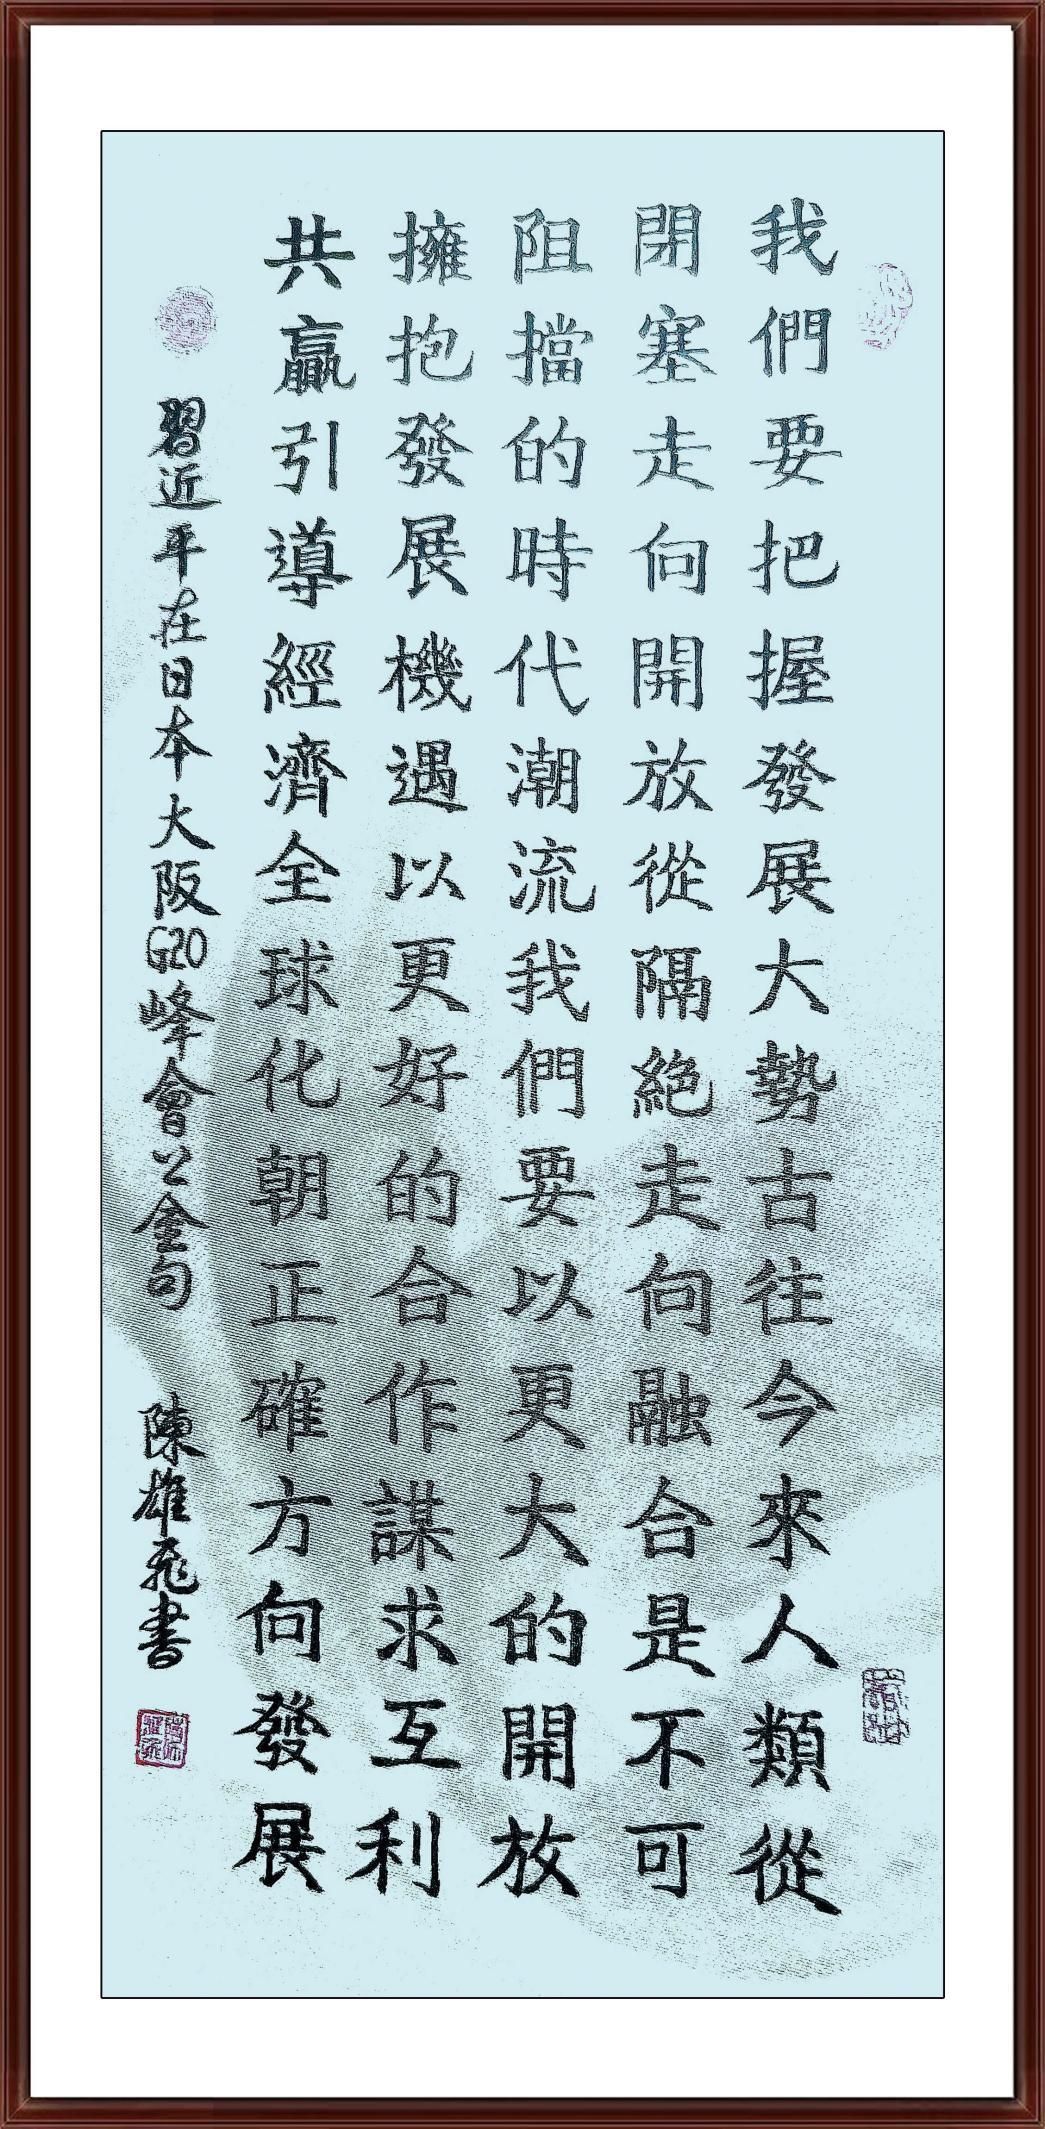 我們要把握發展大勢古往今來人類從
閉塞走向開放從隔絶走向融合是不可
阻擋的時代潮流我們要以更大的開放
擁抱發展機遇以更好的合作謀求互利
共贏引導經濟全球化朝正確方向發展
習近平在日本大阪G20峰會公金句
陳雄飛書